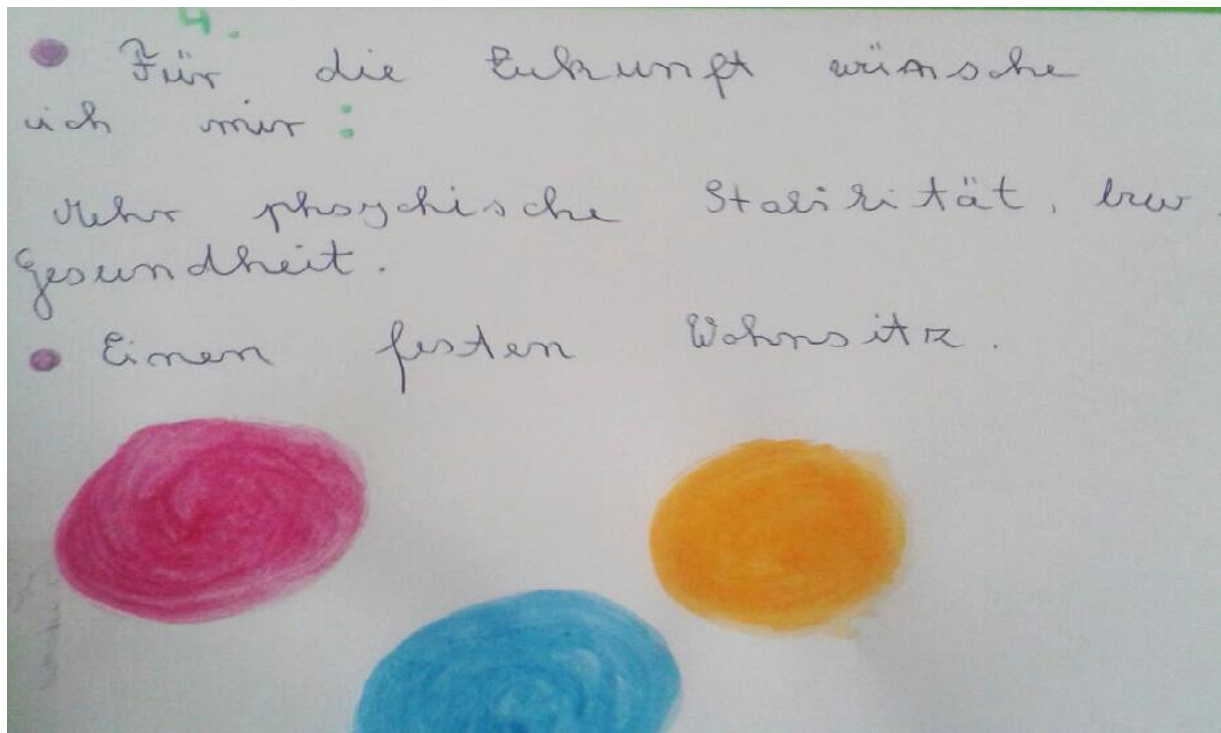 4.
Für die Zukunft wünsche
ich mir :
Mehr phsychische Stabilität, bzw.
Gesundheit.
Einen festen Wohnsitz.